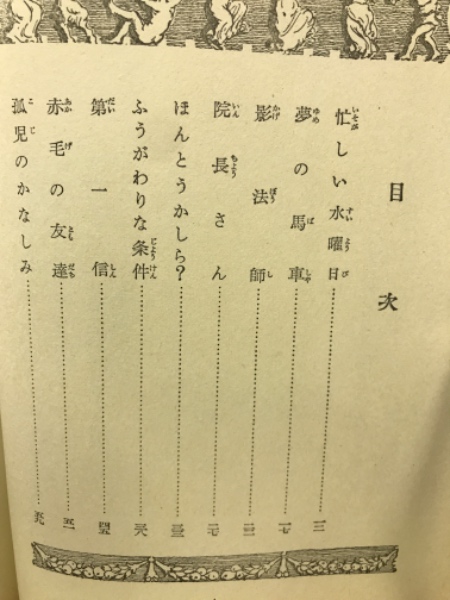 目次
忙しい水曜日……一三
夢の馬車……一七
影法師……二三
院長さん……二七
ほんとうかしら？……三三
ふうがわりな条件……三八
第一信……四五
赤毛の友達……五一
孤児のかなしみ……五九